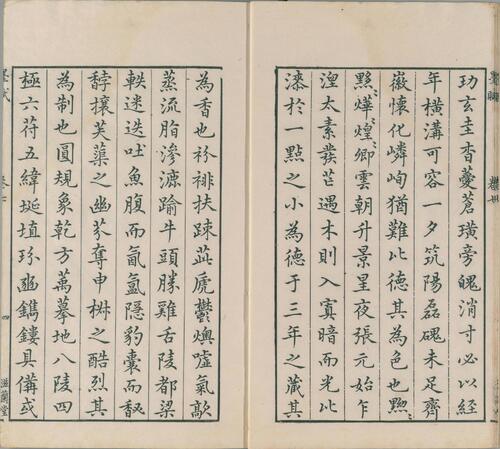 玏玄圭杳蔓蒼璜旁魄消寸必以經
年橫溝可容一夕筑陽磊磈未足齊
徽懷化嶙峋猶難比德其為色也黝〻
黟〻燁煌〻卿雲朝升景星夜張元始乍
湼太素發芒遇木則入寘暗而光比
漆於一點之小為德于三年之藏其
為香也衯裶扶疎茈虒鬱燠噓氣歊
蒸流脂滲漉踰牛頭勝雞舌陵都梁
軼迷迭吐魚腹而氤氳隱豹囊而馝
馞攘芙蕖之幽芬奪申椒之酷烈其
為制也圓規象乾方萬摹地八陵四
極六苻五緯埏埴玢豳鐫鏤具備或
四
滋蘭堂